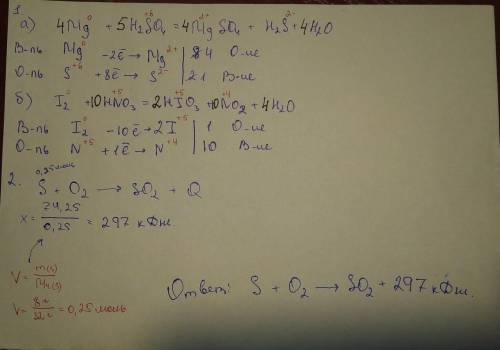 1
а) 4Mg⁰ + 5H₂S⁺⁶O₄ = 4Mg²⁺SO₄ + H₂S²⁻ + 4H₂O
В-ль Mg⁰ -2ē → Mg²⁺ | 8 4 О-ие
О-ль S⁺⁶ +8ē → S²⁻ | 2 1 В-ие
б) I₂⁰ + 10HN⁺⁵O₃ = 2HI⁺⁵O₃ + 10N⁺⁴O₂ + 4H₂O
В-ль I₂⁰ -10ē → 2I⁺⁵ | 1 О-ие
О-ль N⁺⁵ +1ē → N⁺⁴ | 10 В-ие
2. 0,25 моль
S + O₂ → SO₂ + Q
x = 74,25 / 0,25 = 297 кДж.
V = m(s) / M(s)
V = 8г / 32г = 0,25 моль
Ответ: S + O₂ → SO₂ + 297 кДж.